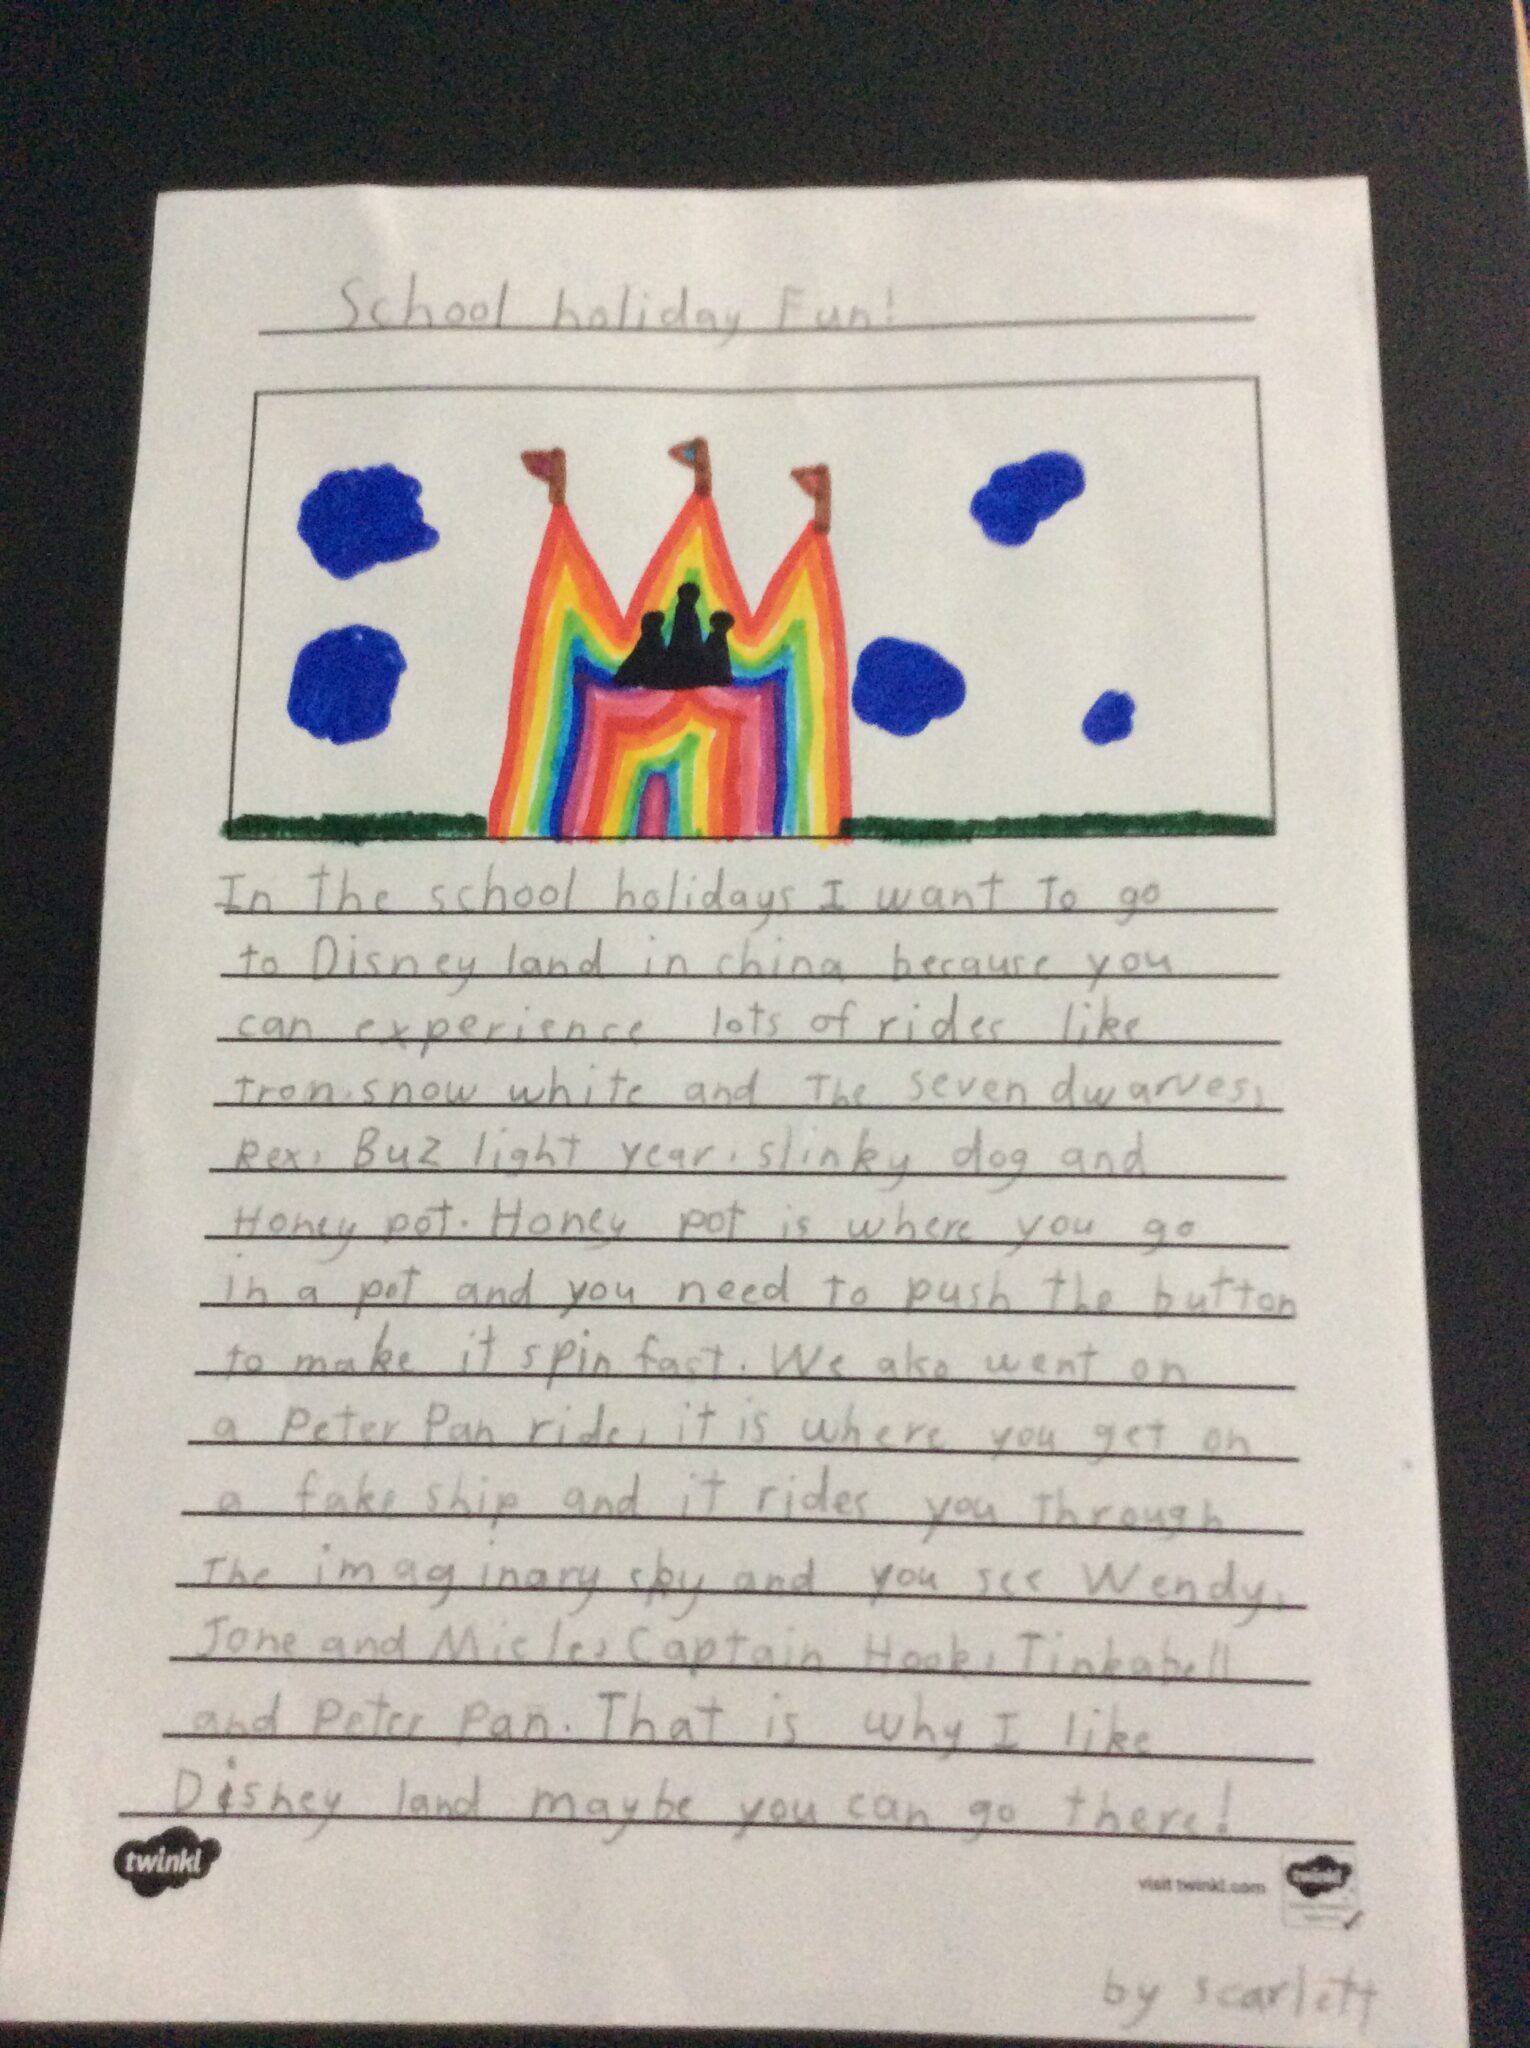 School holiday Fun!
In the school holidays I want to go
to Disney land in china because you
can experience lots of rides like
tron, snow white and the seven dwarves,
Rex, Buz light year, slinky dog and
Honey pot. Honey pot is where you go
in a pot and you need to push the button
to make it spin fast. We also went on
a Peter Pan ride, it is where you get on
a fake ship and it rides you through
the imaginary sky and you see Wendy,
Jone and Micle, Captain Hook, Tinkabell
and Peter Pan. That is why I like
Disney land maybe you can go there!
twinkl
visit twinkl.com
twinkl
by scarlett